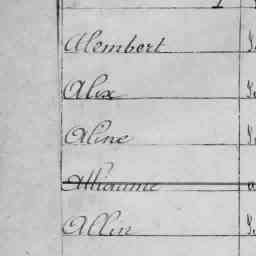 Alembert
Alix
Aline
Alliaume
Allin